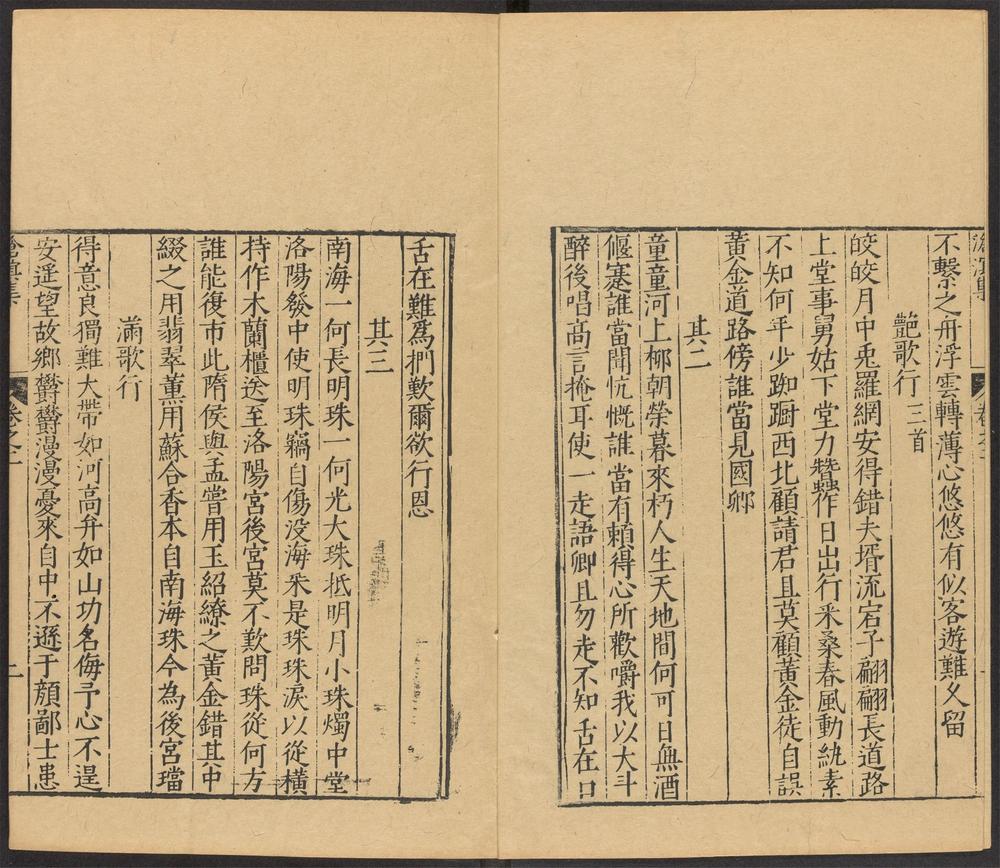 滄溟集
卷之二
不繫之舟浮雲轉薄心悠悠有似客遊難久留
艷歌行三首
皎皎月中兎羅網安得錯夫壻流宕子翩翩長道路
上堂事舅姑下堂力蠶作日出行采桑春風動紈素
不知何年少踟躕西北顧請君且莫顧黃金徒自誤
黃金道路傍誰當見國卿
其二
童童河上柳朝榮暮來朽人生天地間何可日無酒
偃蹇誰當聞忼慨誰當有頼得心所歡嚼我以大斗
醉後唱高言掩耳使一走語卿且勿走不知舌在口
舌在難爲捫歎爾欲行恩
其三
南海一何長明珠一何光大珠抵明月小珠燭中堂
洛陽發中使明珠竊自傷没海采是珠珠淚以從橫
持作木蘭櫃送至洛陽宮後宮莫不歎問珠從何方
誰能復市此隋侯與孟嘗用玉紹繚之黃金錯其中
綴之用翡翠薰用蘇合香本自南海珠今為後宮璫
滿歌行
得意良獨難大帶如河高弁如山功名侮予心不遑
安遥望故鄉欝欝漫漫憂來自中不遜于顔鄙士患
滄溟集
卷之二
二